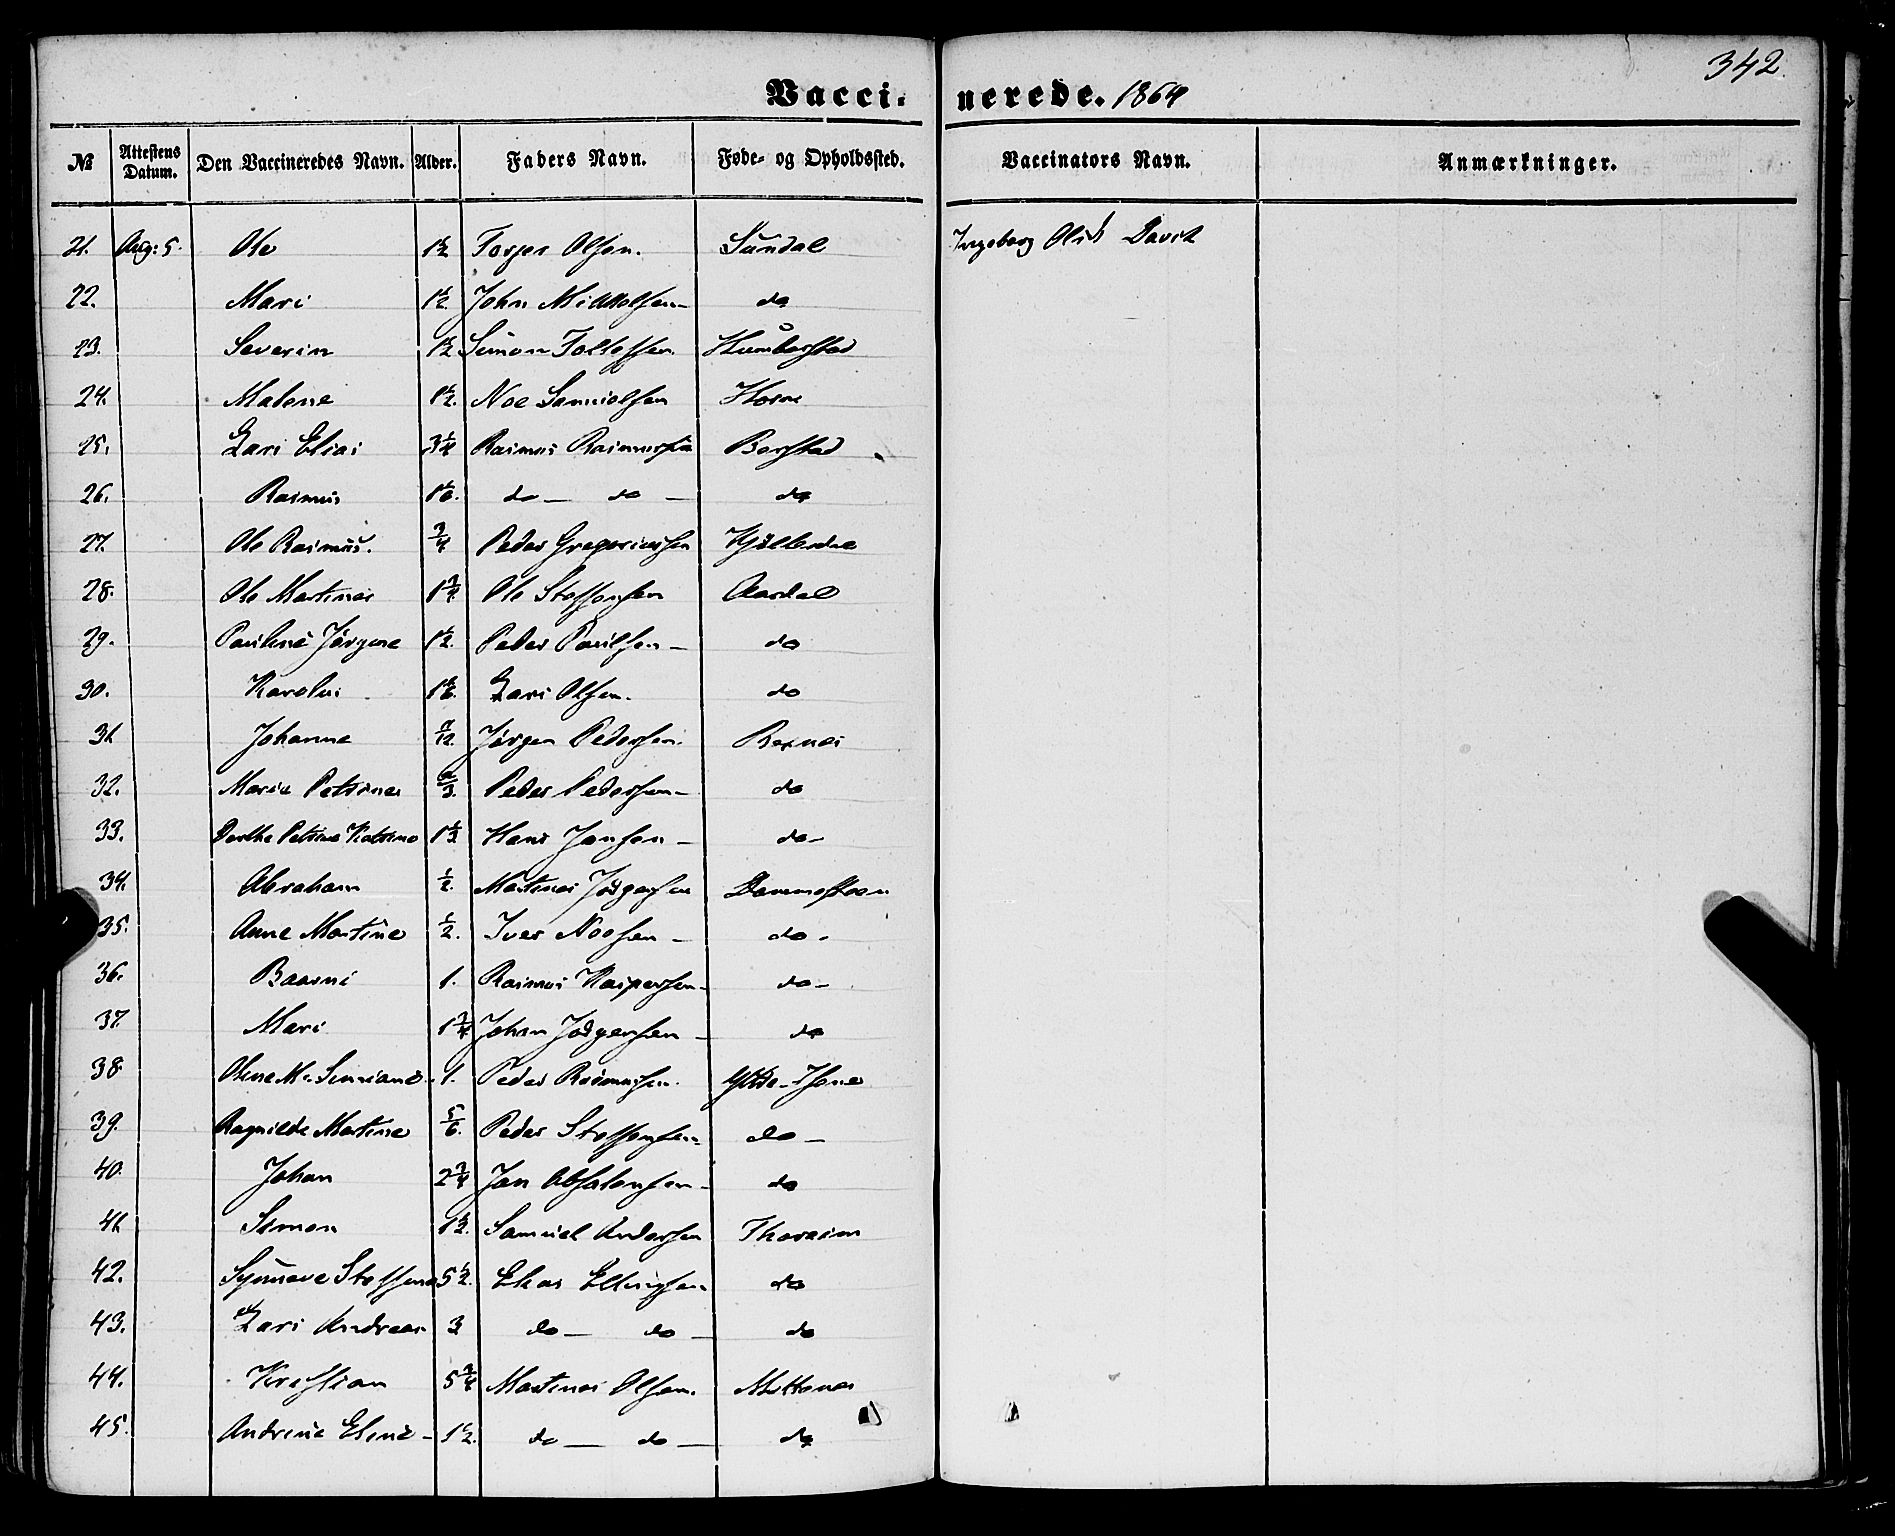 342.
Vaccinerede. 1864
№ Attestens Datum. Den Vaccineredes Navn. Alder. Faders Navn. Føde- og Opholdssted. Vaccinators Navn. Anmærkninger.
21. Aug: 5. Ole 1½ Olsen. Sundal Ingeborg Davik
22. Mari 1½. John Mikkelsen do
23. Severin 1½ Simon Humborstad
24. Malene 1½. Noe Samuelsen
25. Lars Elias 3¼ Rasmus Rasmussen Borstad
26. Rasmus do do do
27. Ole Rasmus. ¾. Peder Gregoriussen Hjellendal
28. Ole Martinus 1¾. Ole Steffensen Aardal
29. Pauline Jørgine 1½. Peder Paulsen do
30. Karolus Lars Olsen. do
31. Johanne 7/12. Jørgen Pedersen. Rexnæs
32. Marie Petrine ⅔. Peder Pedersen do
33. Dorthe Petrine Katrine 1⅓ Hans Jansen do
34. Abraham ½. Martinus Jørgensen Dommesteen
35. Anne Martine ½. Iver Noesen do
36. 1. Rasmus Kaspersen do
37. Mari 1¾ Johan Jørgensen do
38. Oline M. 1. Peder Rasmussen. Ytre-
39. Ragnilde Martine 5/6. Peder Steffensen do
40. Johan 2¾ Jan Absalonsen do
41. Simon 1½. Samuel Andersen
42. Synneve Steffine 5½. Elias Ellingsen do
43. Lars Andreas 3 do do do
44. Kristian 5¾ Martinus Olsen.
45. Andrine Eline 1½. do do do